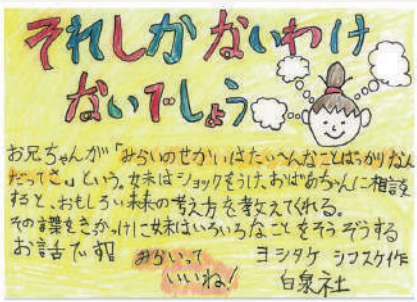 それしかないわけ
ないでしょう
お兄ちゃんが「みらいのせかいはたいへんなことばっかりなん
だってさ。」という。妹はショックをうけ、おばあちゃんに相談
すると、おもしろい未来の考え方を教えてくれる。
その言葉をきっかけに妹はいろいろなことをそうぞうする
お話です。
みらいって
いいね!
ヨシタケシンスケ作
白泉社